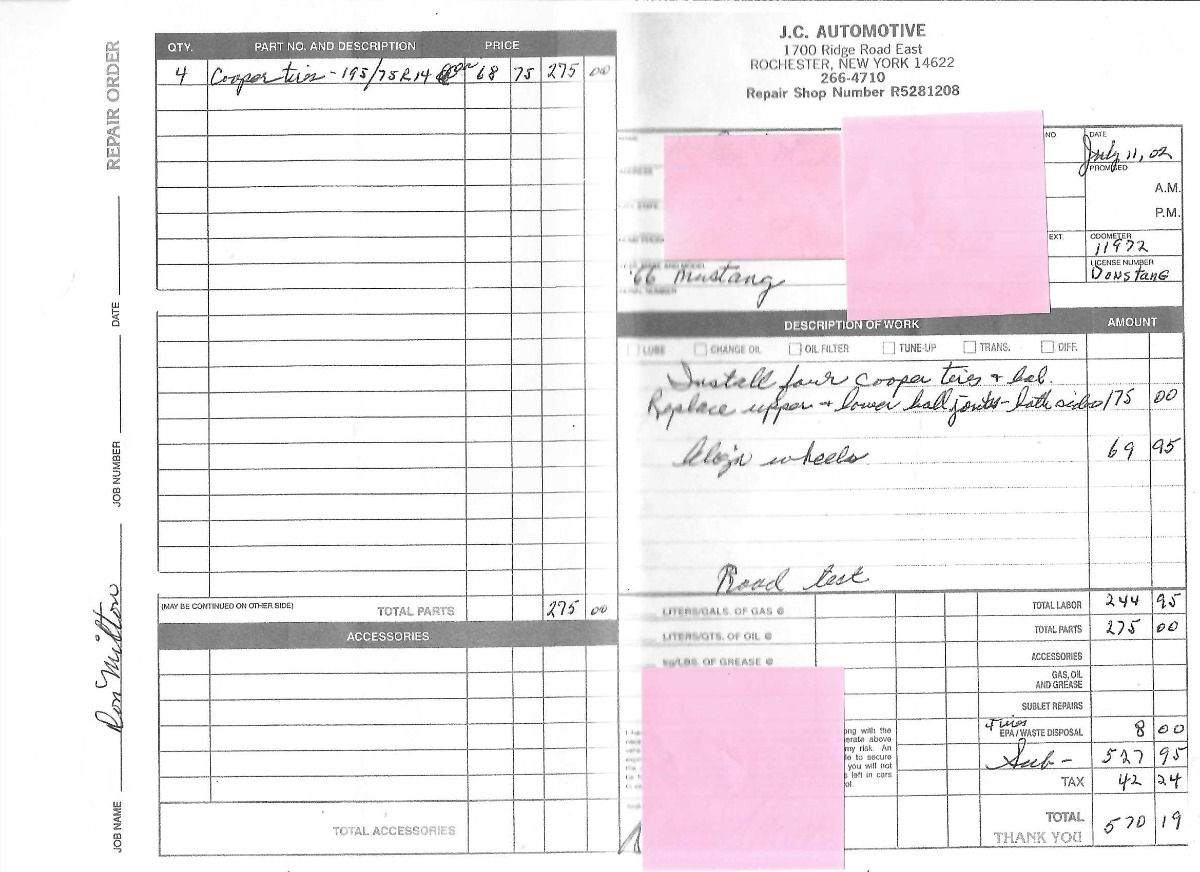 REPAIR ORDER
JOB NAME Don Milton JOB NUMBER DATE
QTY. PART NO. AND DESCRIPTION PRICE
4 Cooper tires - 195/75R14 68 75 275 00
(MAY BE CONTINUED ON OTHER SIDE) TOTAL PARTS 275 00
ACCESSORIES
TOTAL ACCESSORIES
J.C. AUTOMOTIVE
1700 Ridge Road East
ROCHESTER, NEW YORK 14622
266-4710
Repair Shop Number R5281208
NO
DATE
July 11, 02
PROMISED
A.M.
P.M.
EXT.
ODOMETER
11972
LICENSE NUMBER
DONSTANG
'66 Mustang
DESCRIPTION OF WORK AMOUNT
LUBE CHANGE OIL OIL FILTER TUNE-UP TRANS. DIFF.
Install four Cooper tires + bal.
Replace upper + lower ball joints - both sides 175 00
Align wheels 69 95
Road test
LITERS/GALS. OF GAS @
LITERS/QTS. OF OIL @
kg/LBS. OF GREASE @
TOTAL LABOR 244 95
TOTAL PARTS 275 00
ACCESSORIES
GAS, OIL
AND GREASE
SUBLET REPAIRS
4 tires
EPA / WASTE DISPOSAL 8 00
Sub - 527 95
TAX 42 24
TOTAL 570 19
THANK YOU
ong with the
erate above
my risk. An
le to secure
you will not
s left in cars
ol.